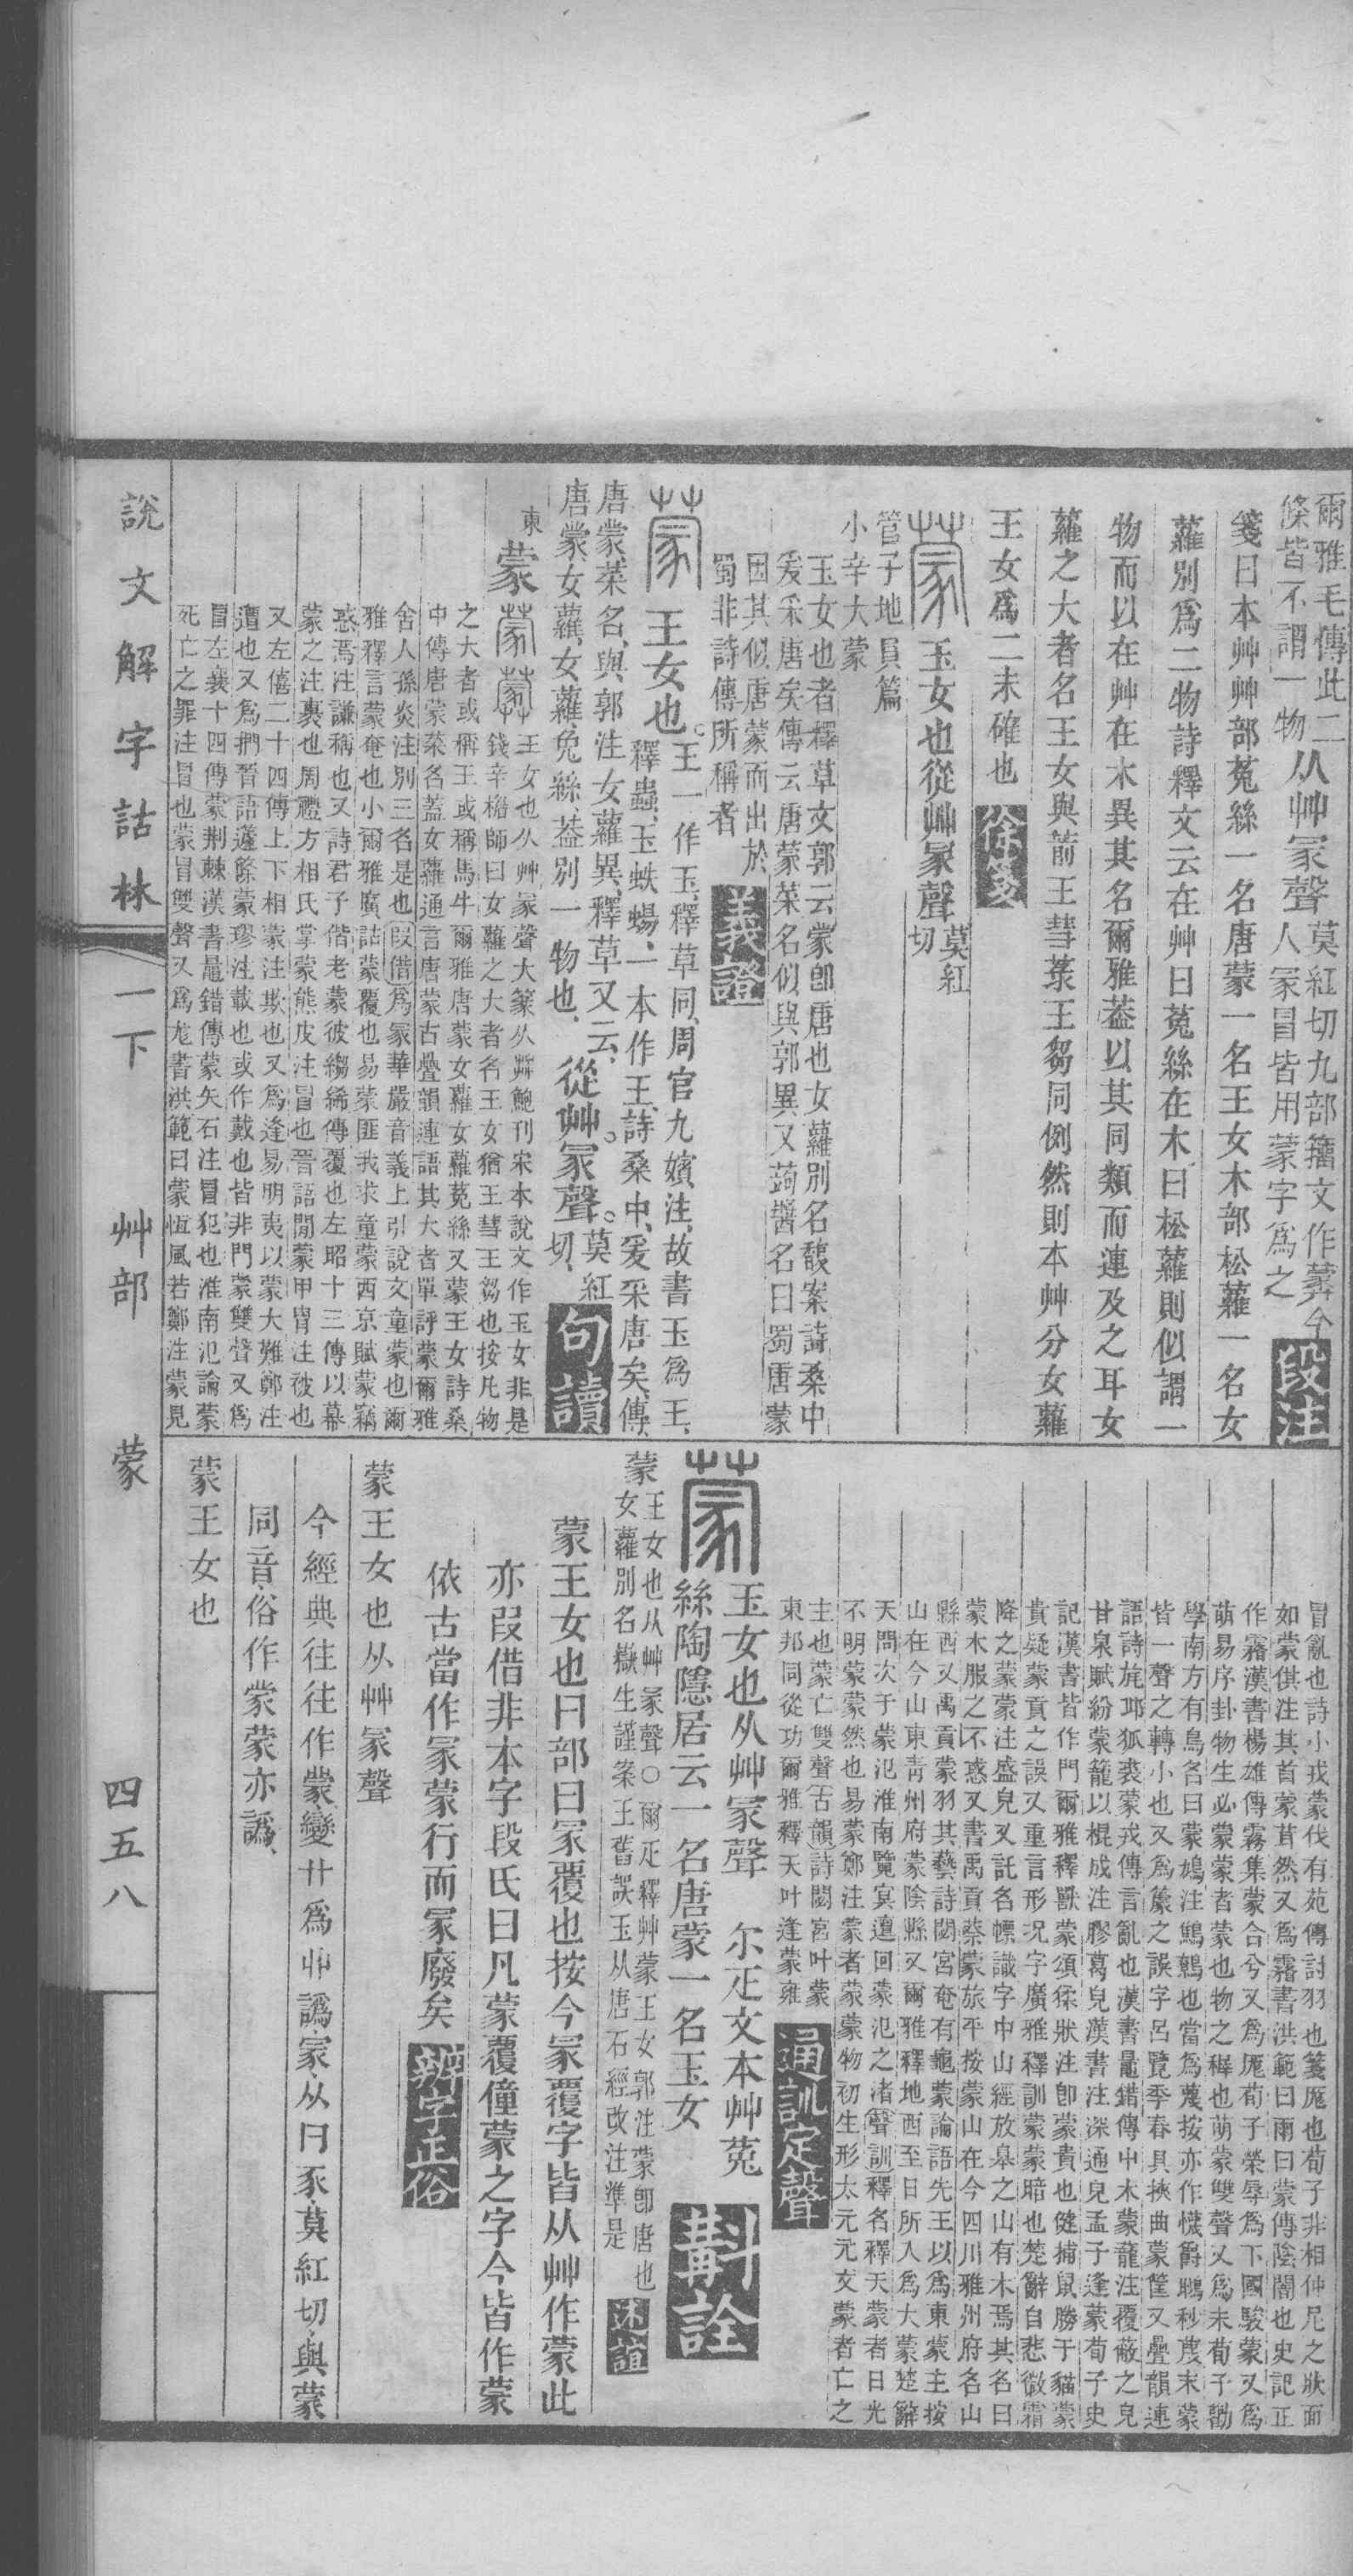 爾雅毛傳此二
條皆不謂一物
从艸冡聲
莫紅切九部籒文作蒙今
人冡冒皆用蒙字爲之
段注
箋曰本艸艸部菟絲一名唐蒙一名王女木部松蘿一名女
蘿別爲二物詩釋文云在艸曰菟絲在木曰松蘿則似謂一
物而以在艸在木異其名爾雅葢以其同類而連及之耳女
蘿之大者名王女與箭王彗菉王芻同例然則本艸分女蘿
王女爲二未確也
徐箋
玉女也從艸冡聲
莫紅
切
管子地員篇
小辛大蒙
玉女也者釋草文郭云蒙卽唐也女蘿別名馥案詩桑中
爰采唐矣傳云唐蒙菜名似與郭異又蒟醬名曰蜀唐蒙
因其似唐蒙而出於
蜀非詩傳所稱者
義證
王女也。
王一作玉、釋草同、周官九嬪注、故書玉爲王、
釋蟲、玉蚨蝪、一本作王、詩桑中、爰采唐矣、傳、
唐蒙、菜名、與郭注女蘿異、釋草又云、
唐蒙、女蘿、女蘿、兔絲、葢別一物也、
從艸。冡聲。
莫紅
切、
句讀
東
蒙
王女也从艸冡聲大篆从茻鮑刊宋本說文作玉女非是
錢辛楣師曰女蘿之大者名王女猶王彗王芻也按凡物
之大者或稱王或稱馬牛爾雅唐蒙女蘿女蘿菟絲又蒙王女詩桑
中傳唐蒙菜名蓋女蘿通言唐蒙古疊韻連語其大者單評蒙爾雅
舍人孫炎注別三名是也叚借爲冡華嚴音義上引說文童蒙也爾
雅釋言蒙奄也小爾雅廣詁蒙覆也易蒙匪我求童蒙西京賦蒙竊
惑焉注謙稱也又詩君子偕老蒙彼縐絺傳覆也左昭十三傳以幕
蒙之注裹也周禮方相氏掌蒙熊皮注冒也晉語閒蒙甲胄注被也
又左僖二十四傳上下相蒙注欺也又爲逢易明夷以蒙大難鄭注
遭也又爲捫晉語蘧蒢蒙璆注載也或作戴也皆非門蒙雙聲又爲
冒左襄十四傳蒙荆棘漢書鼂錯傳蒙矢石注冒犯也淮南氾論蒙
死亡之罪注冒也蒙冒雙聲又爲尨書洪範曰蒙恆風若鄭注蒙見
說文解字詁林
一下
艸部
蒙
四五八
冒亂也詩小戎蒙伐有苑傳討羽也箋厖也荀子非相仲尼之狀面
如蒙倛注其首蒙茸然又爲霿書洪範曰雨曰蒙傳陰闇也史記正
作霧漢書楊雄傳霧集蒙合兮又爲厖荀子榮辱爲下國駿蒙又爲
萌易序卦物生必蒙蒙者蒙也物之穉也萌蒙雙聲又爲末荀子勸
學南方有鳥名曰蒙鳩注鷦鷯也當爲蔑按亦作懱爵鷦杪蔑末蒙
皆一聲之轉小也又爲籚之誤字呂覽季春具挾曲蒙筐又疊韻連
語詩旄邱狐裘蒙戎傳言亂也漢書鼂錯傳中木蒙蘢注覆蔽之皃
甘泉賦紛蒙籠以棍成注膠葛皃漢書注深通皃孟子逢蒙荀子史
記漢書皆作門爾雅釋獸蒙頌猱狀注卽蒙貴也健捕鼠勝于貓蒙
貴疑蒙貢之誤又重言形況字廣雅釋訓蒙蒙暗也楚辭自悲微霜
降之蒙蒙注盛皃又託名幖識字中山經放皋之山有木焉其名曰
蒙木服之不惑又書禹貢蔡蒙旅平按蒙山在今四川雅州府名山
縣西又禹貢蒙羽其藝詩閟宮奄有龜蒙論語先王以爲東蒙主按
山在今山東靑州府蒙陰縣又爾雅釋地西至日所入爲大蒙楚辭
天問次于蒙汜淮南覽冥邅回蒙汜之渚聲訓釋名釋天蒙者日光
不明蒙蒙然也易蒙鄭注蒙者蒙蒙物初生形太元元文蒙者亡之
主也蒙亡雙聲古韻詩閟宮叶蒙
東邦同從功爾雅釋天叶逢蒙雍
通訓定聲
玉女也从艸冡聲 尒疋文本艸菟
絲陶隱居云一名唐蒙一名玉女
斠詮
蒙
王女也从艸冡聲○爾疋釋艸蒙王女郭注蒙卽唐也
女蘿別名嶽生謹案王舊誤玉从唐石經改注準是
述誼
蒙王女也冃部曰冡覆也按今冡覆字皆从艸作蒙此
亦叚借非本字段氏曰凡蒙覆僮蒙之字今皆作蒙
依古當作冡蒙行而冡廢矣
辨字正俗
蒙王女也从艸冡聲
今經典往往作蒙、變廾爲艸、譌冡、从冃豕、莫紅切、與蒙
同音、俗作䝉、蒙亦譌、
蒙王女也